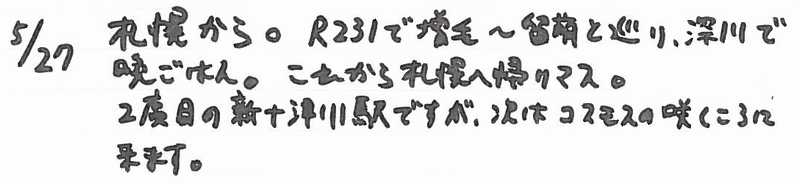 5/27 札幌から。R231で増毛～留萌と巡り、深川で
晩ごはん。これから札幌へ帰りマス。
2度目の新十津川駅ですが、次はコスモスの咲くころに
来ます。